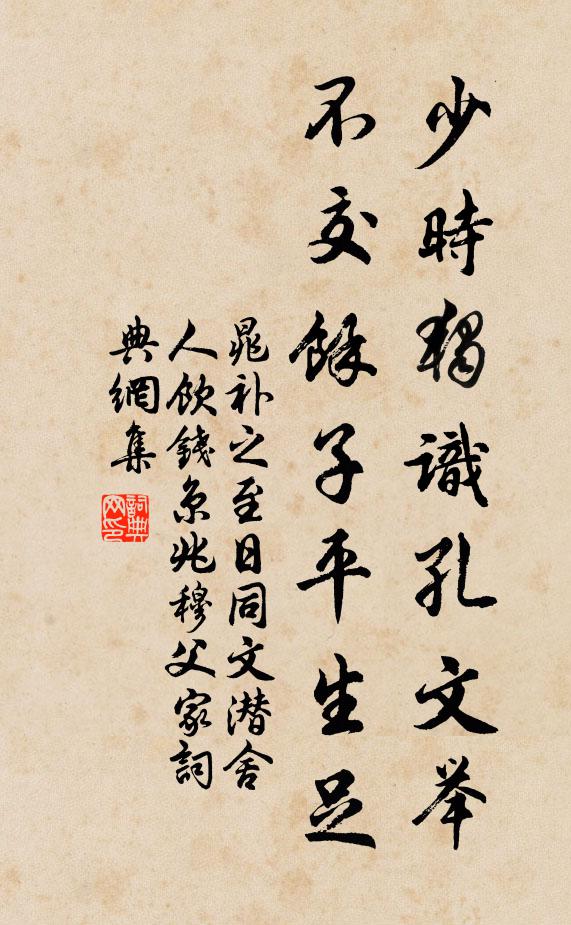 少時獨識孔文举
不交餘子平生足
晁补之至日同文潜舍
人饮錢京兆穆父家詞
典網集
詞典网印